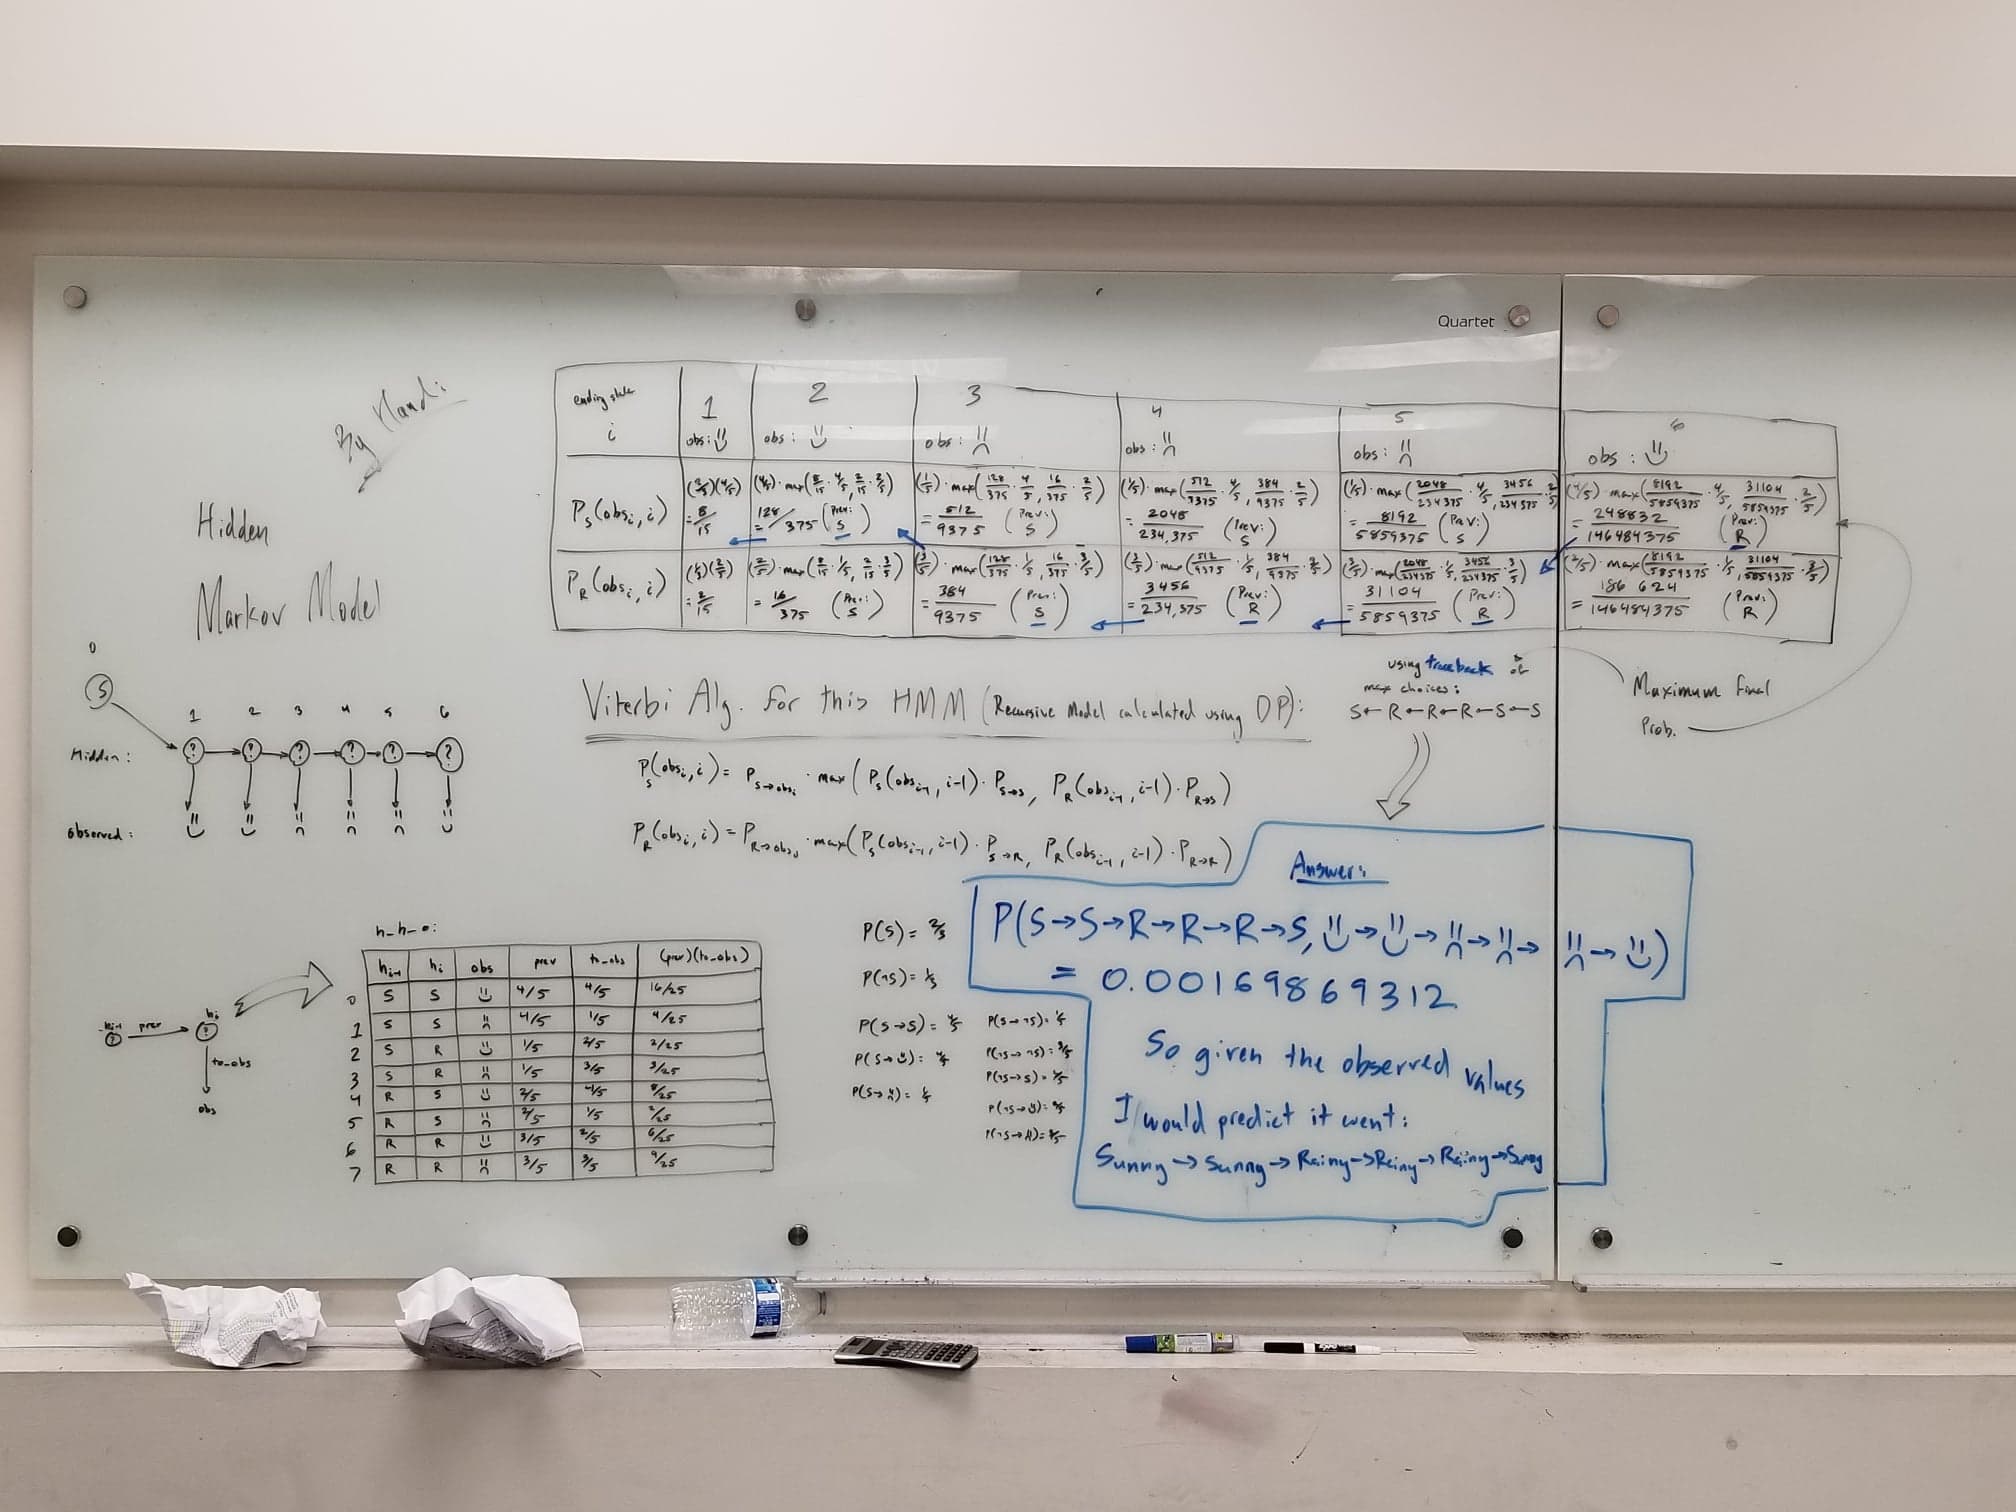 Quartet
By Mandi
Hidden
Markov Model
ending state i | 1 obs: ☺ | 2 obs: ☺ | 3 obs: ☹ | 4 obs: ☹ | 5 obs: ☹ | 6 obs: ☺
P_S(obs_i, i) | (2/3)(4/5) = 8/15 | (4/5)·max(8/15·4/5, 2/15·2/5) = 128/375 (Prev: S) | (1/5)·max(128/375·4/5, 16/375·2/5) = 512/9375 (Prev: S) | (1/5)·max(512/9375·4/5, 384/9375·2/5) = 2048/234,375 (Prev: S) | (1/5)·max(2048/234375·4/5, 3456/234375·2/5) = 8192/5859375 (Prev: S) | (4/5)·max(8192/5859375·4/5, 31104/5859375·2/5) = 248832/146484375 (Prev: R)
P_R(obs_i, i) | (1/3)(2/5) = 2/15 | (2/5)·max(8/15·1/5, 2/15·3/5) = 16/375 (Prev: S) | (3/5)·max(128/375·1/5, 16/375·3/5) = 384/9375 (Prev: S) | (3/5)·max(512/9375·1/5, 384/9375·3/5) = 3456/234,375 (Prev: R) | (3/5)·max(2048/234375·1/5, 3456/234375·3/5) = 31104/5859375 (Prev: R) | (2/5)·max(8192/5859375·1/5, 31104/5859375·3/5) = 186 624/146484375 (Prev: R)
0
S
1 2 3 4 5 6
Hidden: ? ? ? ? ? ?
Observed: ☺ ☺ ☹ ☹ ☹ ☺
Viterbi Alg. for this HMM (Recursive Model calculated using DP):
P_S(obs_i, i) = P_S→obs_i · max(P_S(obs_i-1, i-1)·P_S→S, P_R(obs_i-1, i-1)·P_R→S)
P_R(obs_i, i) = P_R→obs_i · max(P_S(obs_i-1, i-1)·P_S→R, P_R(obs_i-1, i-1)·P_R→R)
using traceback of
max choices:
S←R←R←R←S←S
Maximum final
Prob.
h_i-1 prev h_i
?
?
to_obs
obs
h_h_o:
h_i-1 | h_i | obs | prev | to_obs | (prev)(to_obs)
0 | S | S | ☺ | 4/5 | 4/5 | 16/25
1 | S | S | ☹ | 4/5 | 1/5 | 4/25
2 | S | R | ☺ | 1/5 | 2/5 | 2/25
3 | S | R | ☹ | 1/5 | 3/5 | 3/25
4 | R | S | ☺ | 2/5 | 4/5 | 8/25
5 | R | S | ☹ | 2/5 | 1/5 | 2/25
6 | R | R | ☺ | 3/5 | 2/5 | 6/25
7 | R | R | ☹ | 3/5 | 3/5 | 9/25
P(S) = 2/3
P(¬S) = 1/3
P(S→S) = 4/5 P(S→¬S) = 1/5
P(S→☺) = 4/5 P(¬S→¬S) = 3/5
P(S→☹) = 1/5 P(¬S→S) = 2/5
P(¬S→☺) = 2/5
P(¬S→☹) = 3/5
Answer:
P(S→S→R→R→R→S, ☺→☺→☹→☹→☹→☺)
= 0.00169869312
So given the observed values
I would predict it went:
Sunny→Sunny→Rainy→Rainy→Rainy→Sunny